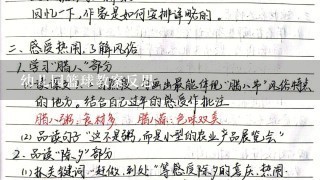 回忆一下,作家是如何安排详略的。
二、感受热闹,了解风俗
1.学习"腊八"部分
画出最能体现"腊八节"风俗特点
的地方。结合自己过年的感受作批注
腊八粥:食材多 腊八蒜:色味双美
(2)品读句子"这不是粥,而是小型的农业产品展览会"
2.品读"除夕"部分
(1)抓关键词,"赶做、到处"等感受除夕的喜庆、热闹。
幼儿园篮球教案反思